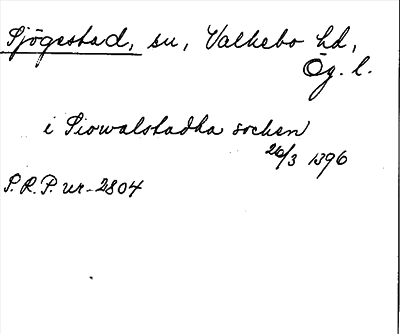 Sjögestad, sn, Valkebo hd,
Ög. l.
i Siowalstadha sochen
26/3 1396
S.R.P. nr 2804